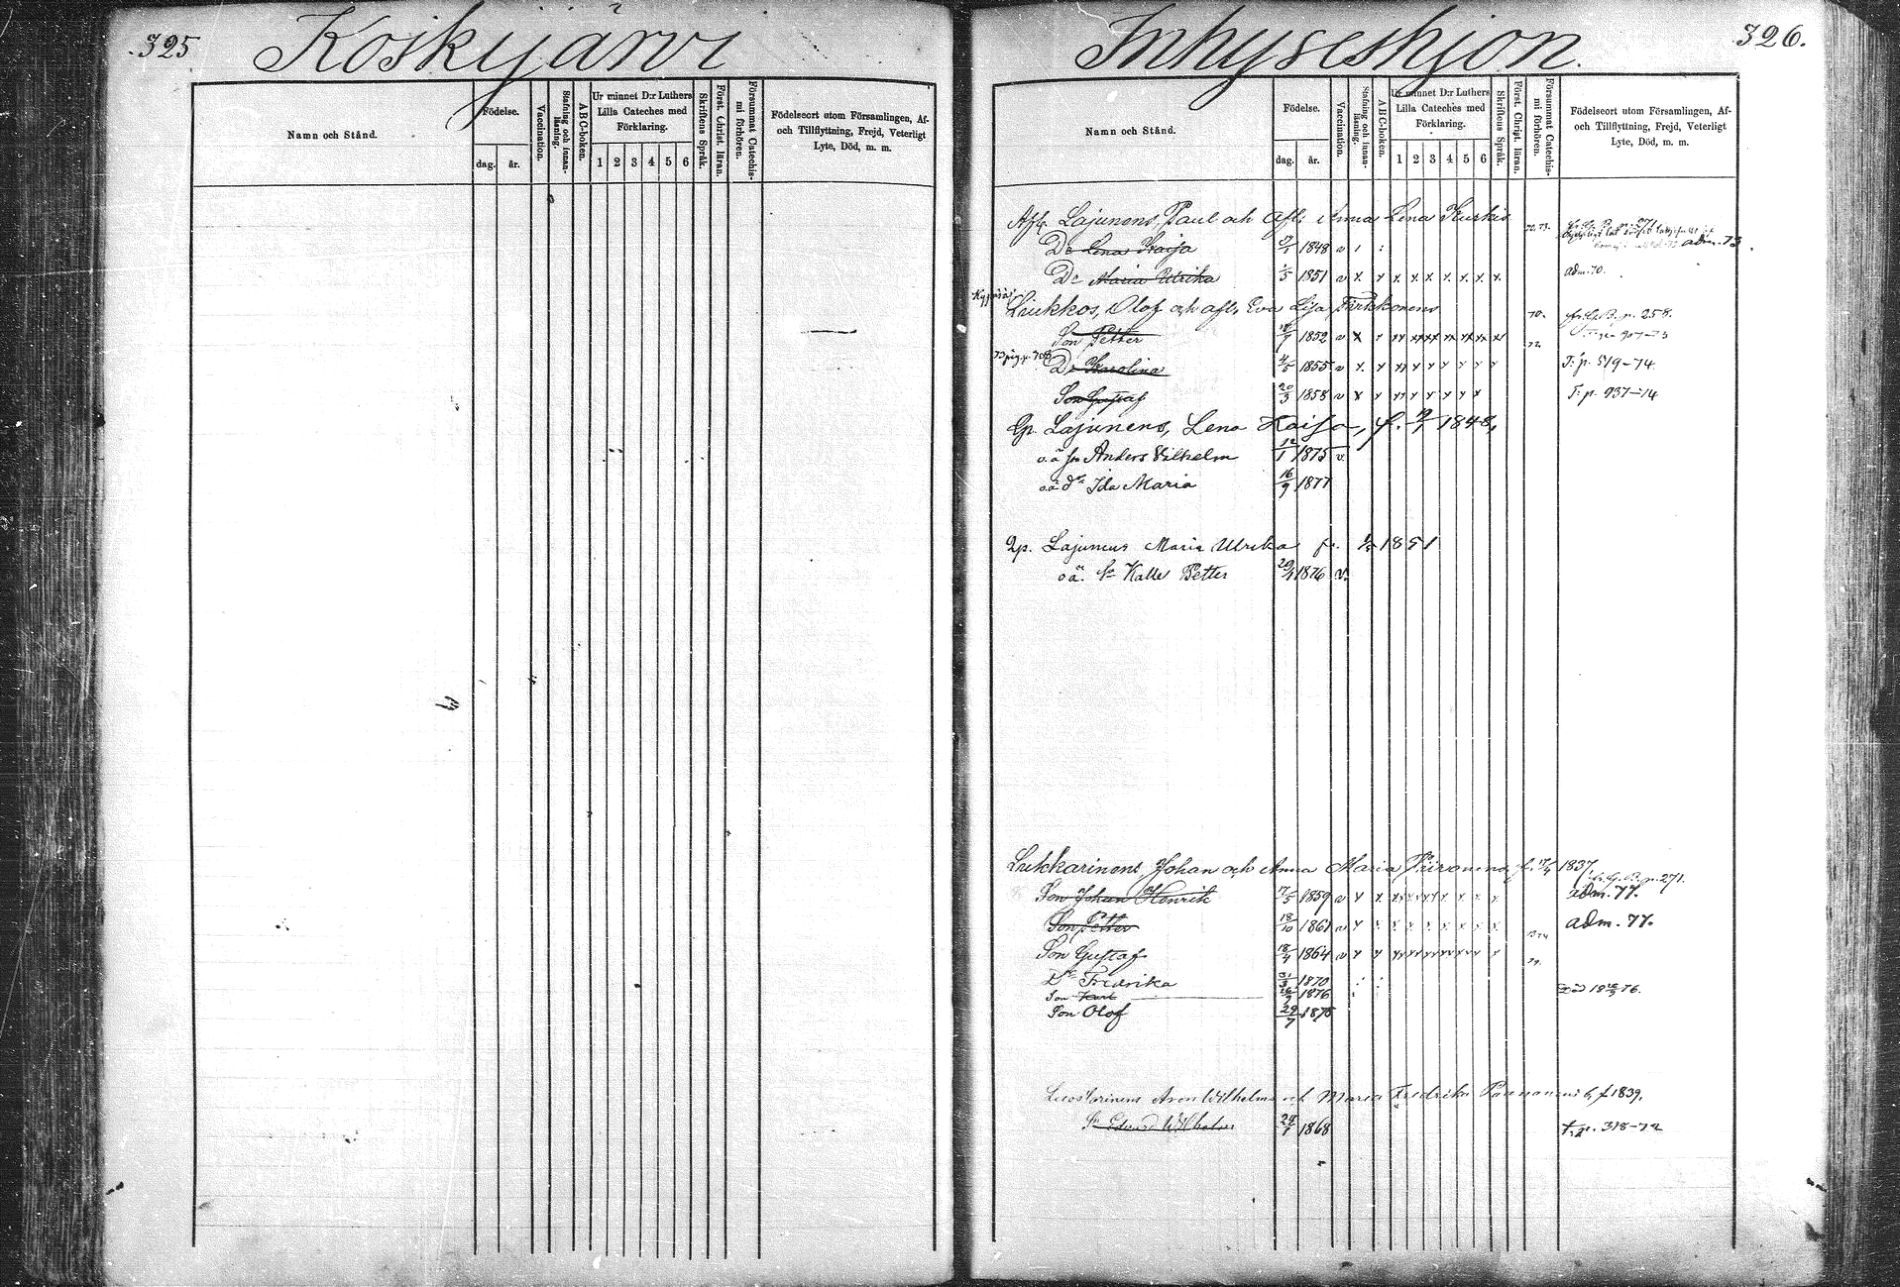 325
Koskijärvi
Namn och Stånd.
Födelse.
dag.
år.
Vaccination.
Stafning och innanläsning.
ABC-boken.
Ur minnet D:r Luthers
Lilla Cateches med
Förklaring.
1 2 3 4 5 6
Skriftens Språk.
Först. Christ. läran.
Försummat Catechismi förhören.
Födelseort utom Församlingen, Af-
och Tillflyttning, Frejd, Veterligt
Lyte, Död, m. m.
326.
Inhyseshjon.
Namn och Stånd.
Födelse.
dag.
år.
Vaccination.
Stafning och innanläsning.
ABC-boken.
Ur minnet D:r Luthers
Lilla Cateches med
Förklaring.
1 2 3 4 5 6
Skriftens Språk.
Först. Christ. läran.
Försummat Catechismi förhören.
Födelseort utom Församlingen, Af-
och Tillflyttning, Frejd, Veterligt
Lyte, Död, m. m.
Lajunens, Paul och afl. Anna Lena Kurkis 72.73.
Dr Lena Kaisa 1848 v adm. 73
Dr Maria Ulrika 1/5 1851 v x x x x x x x x x adm. 70.
Liukkos, Olof och afl. Eva Lisa Pirkkonens 70. p. 258.
Son Petter 1852 v
Dr Karolina 4/5 1855 v T. p. 519-74.
Son Gustaf 20/3 1858 v T. p. 937-74
Qp. Lajunens, Lena Kaisa, f. 1848,
o.ä. sn Anders Vilhelm 12/1 1875 v.
o.ä. dr Ida Maria 16/9 1877
Qp. Lajunens Maria Ulrika f. 1/5 1851
o.ä. sn Kalle Petter 1876 v.
Lukkarinens, Johan och Anna Maria Piironens, f. 1837
p. 271.
Son Johan Henrik 17/5 1859 v adm. 77.
Son Petter 18/10 1861 v adm. 77.
Son Gustaf 18/4 1864 v
Dr Fredrika 31/3 1870
Son Karl 1876 Död 76.
Son Olof 29/7 1878
Aron Wilhelms och Maria Fredrika f. 1839.
Sn Edvard Wilhelm 1868 T. p. 318-72